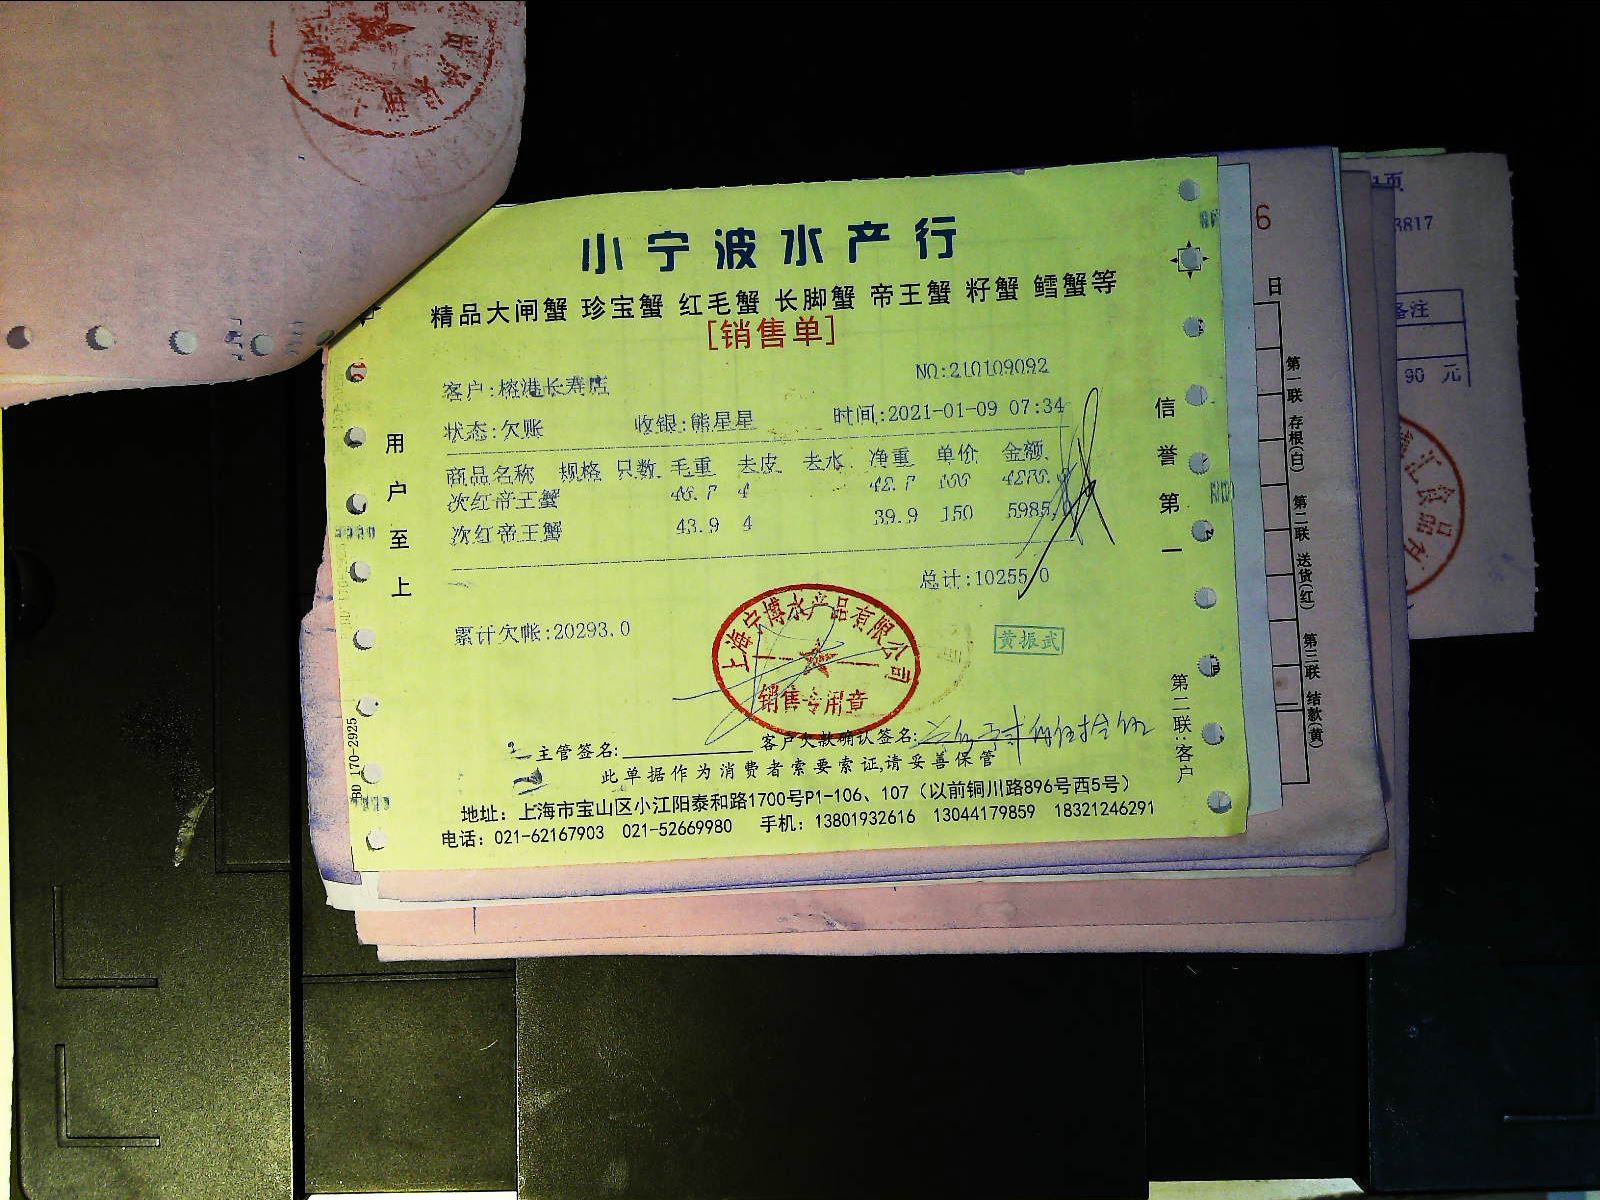 小宁波水产行
精品大闸蟹 珍宝蟹 红毛蟹 长脚蟹 帝王蟹 籽蟹 鳕蟹等
[销售单]
客户:榕港长寿店 NO:210109092
状态:欠账 收银:熊星星 时间:2021-01-09 07:34
商品名称 规格 只数 毛重 去皮 去水 净重 单价 金额
次红帝王蟹 46.7 4 42.7 100 4270.0
次红帝王蟹 43.9 4 39.9 150 5985.0
总计:10255.0
累计欠帐:20293.0
上海宁博水产品有限公司
销售专用章
黄振武
主管签名: 客户欠款确认签名:
此单据作为消费者索要索证,请妥善保管
地址: 上海市宝山区小江阳泰和路1700号P1-106、107 (以前铜川路896号西5号)
电话: 021-62167903 021-52669980 手机: 13801932616 13044179859 18321246291
用户至上
信誉第一
第二联:客户
BD 170-2925
6
日
第一联 存根(白) 第二联 送货(红) 第三联 结款(黄)
页
3817
备注
90 元